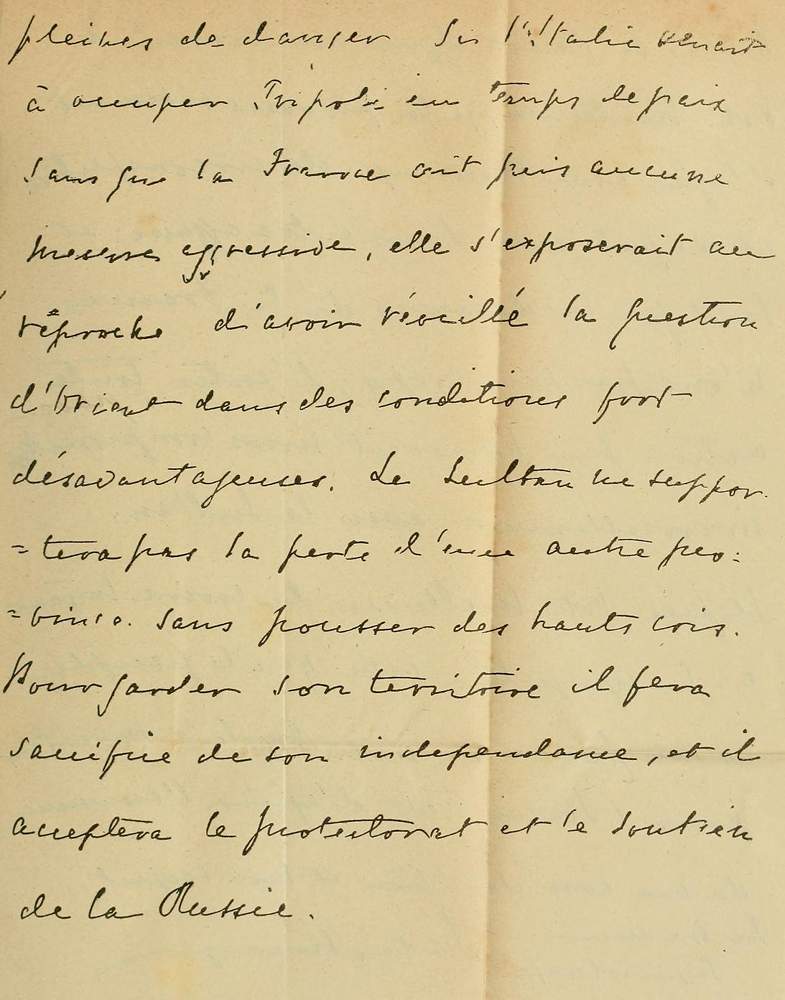 pleines de danger Si l'Italie venait
à occuper Tripoli en temps de paix
sans que la France ait pris aucune
mesure aggressive, elle s'exposerait au
réproche d'avoir réveillé la question
d'Orient dans des conditions fort
désavantageuses. Le Sultan ne suppor-
=tera pas la perte d'une autre pro:
=vince. sans pousser des hauts cris.
Pour garder son territoire il fera
sacrifice de son independance, et il
acceptera le protectorat et le soutien
de la Russie.